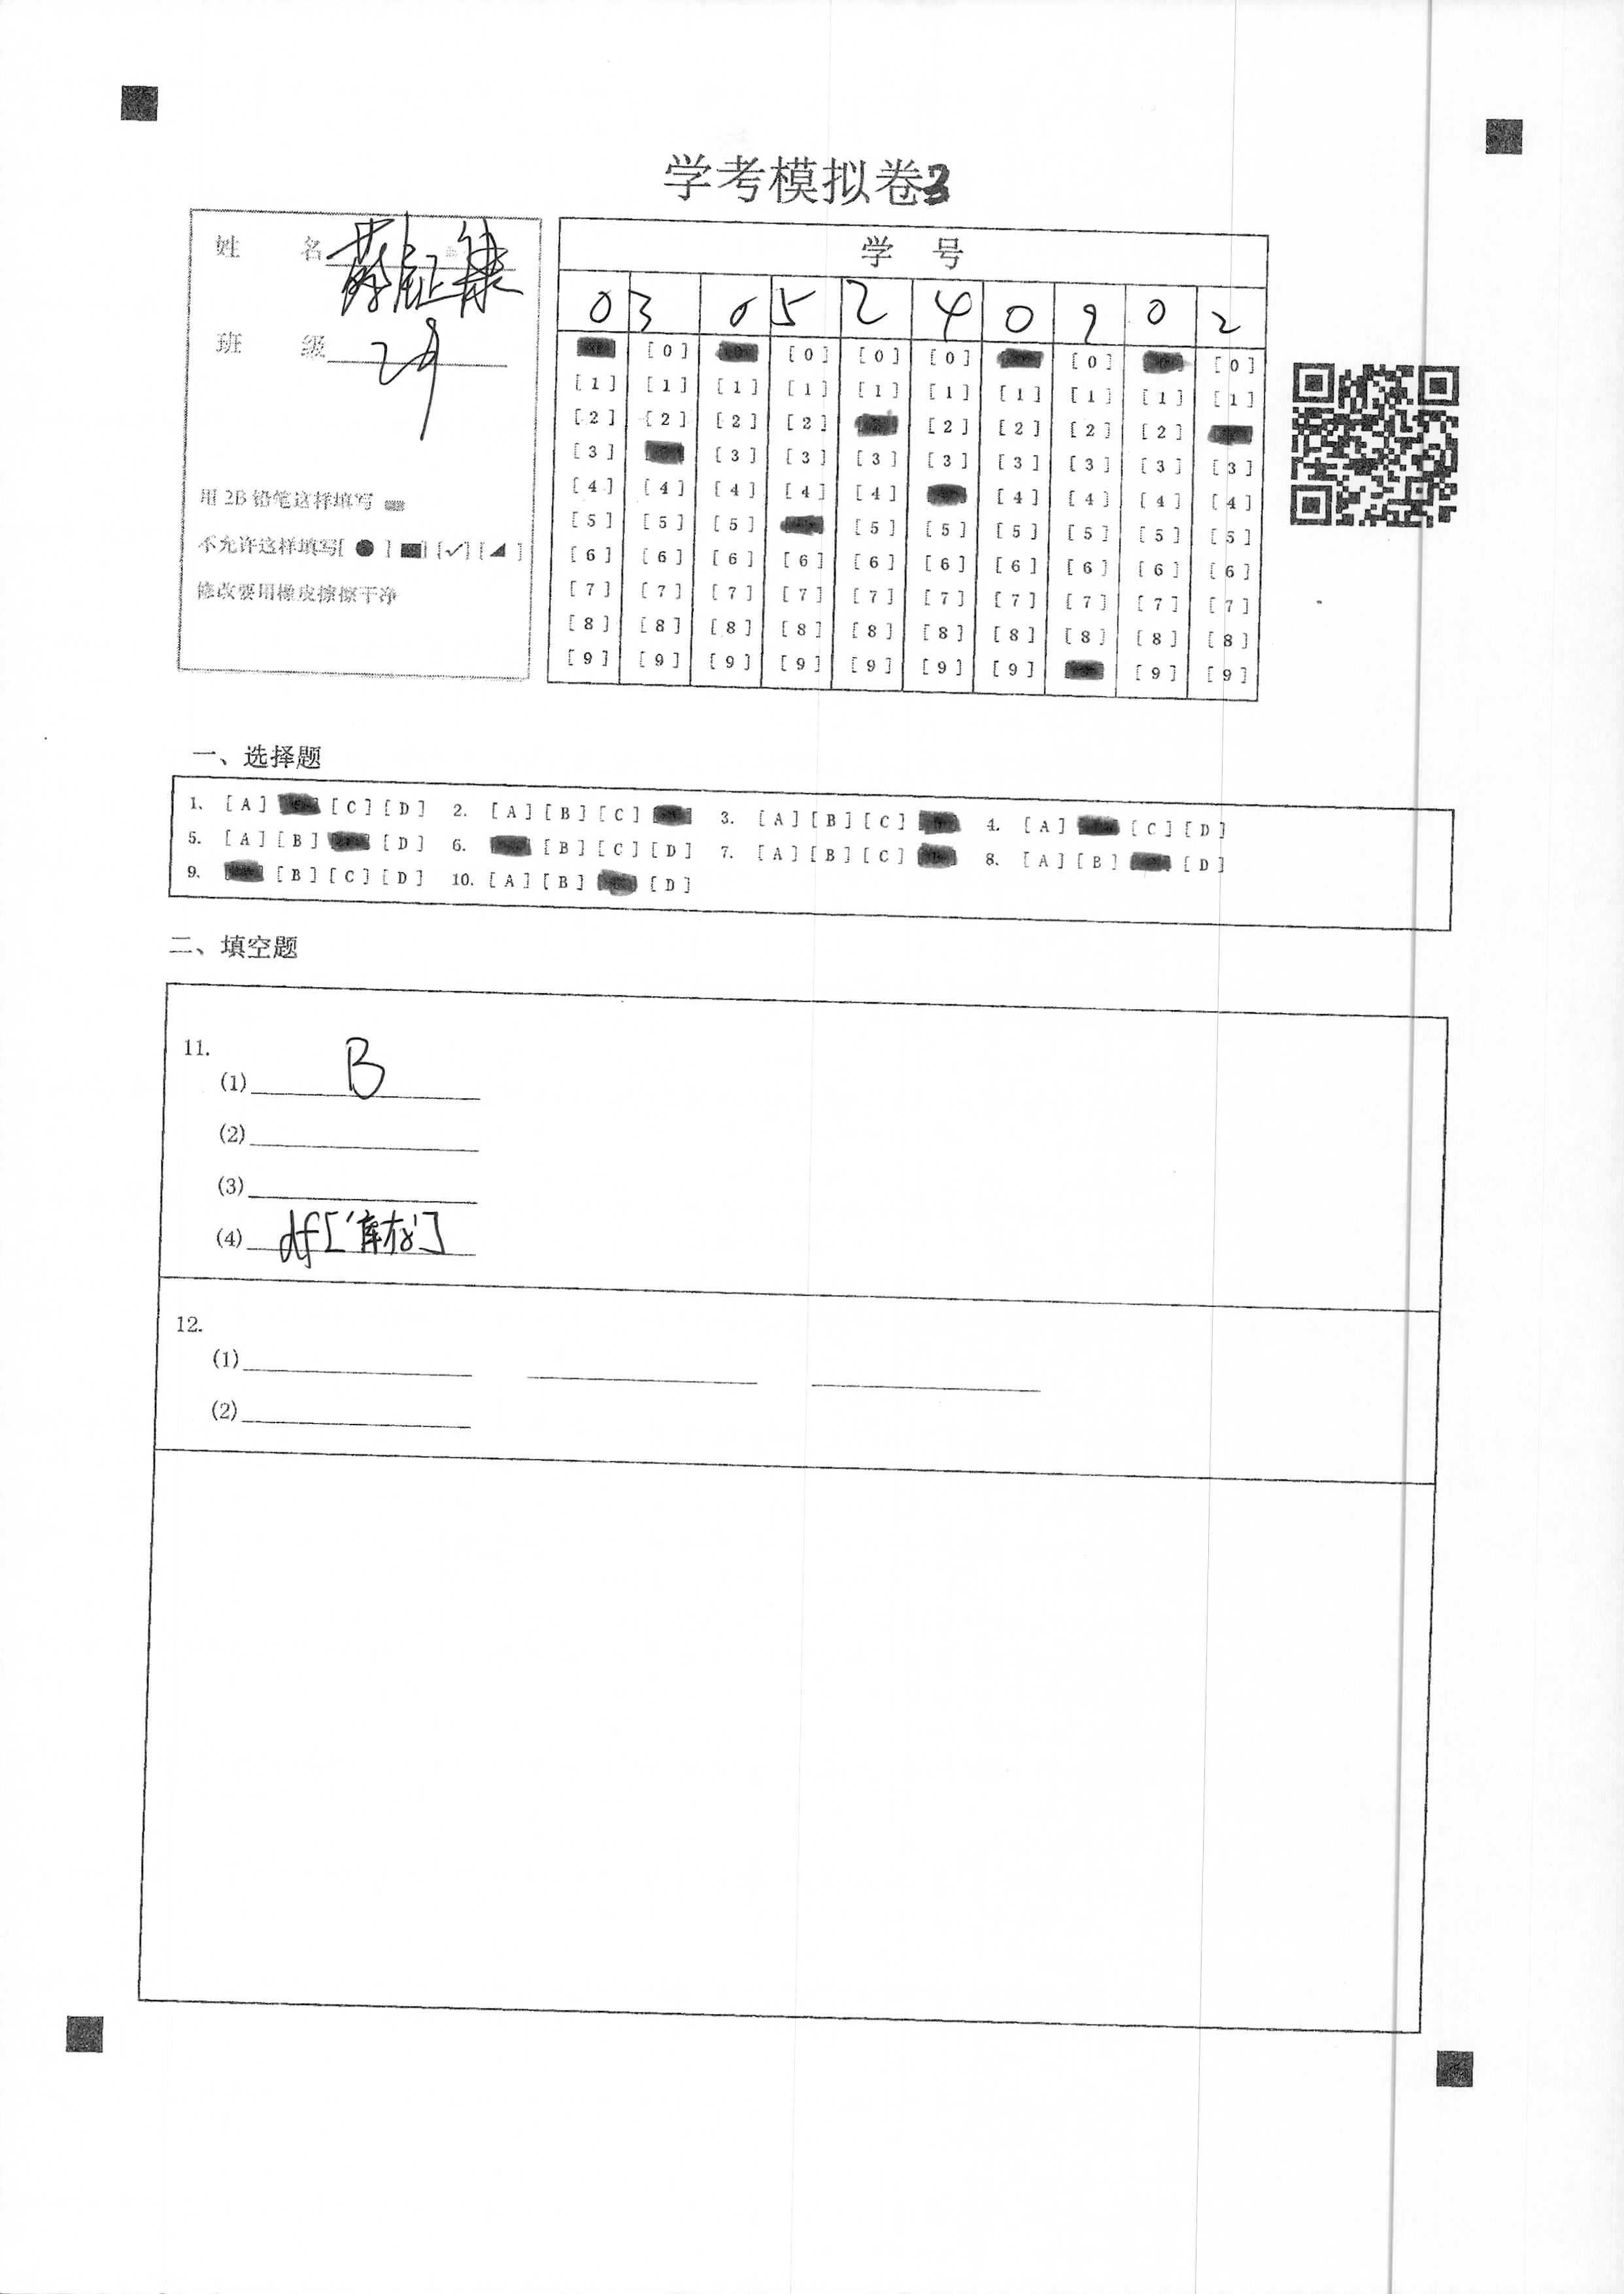 学考模拟卷3
姓 名
班 级 29
用 2B 铅笔这样填写
不允许这样填写[ ● ] ■] [✓] [◢ ]
修改要用橡皮擦擦干净
学 号
0 3 0 5 2 4 0 9 0 2
[0] [0] [0] [0] [0] [0]
[1] [1] [1] [1] [1] [1] [1] [1] [1] [1]
[2] [2] [2] [2] [2] [2] [2] [2]
[3] [3] [3] [3] [3] [3] [3] [3] [3]
[4] [4] [4] [4] [4] [4] [4] [4] [4]
[5] [5] [5] [5] [5] [5] [5] [5] [5]
[6] [6] [6] [6] [6] [6] [6] [6] [6] [6]
[7] [7] [7] [7] [7] [7] [7] [7] [7] [7]
[8] [8] [8] [8] [8] [8] [8] [8] [8] [8]
[9] [9] [9] [9] [9] [9] [9] [9] [9]
一、选择题
1. [A] [C] [D] 2. [A] [B] [C] 3. [A] [B] [C] 4. [A] [C] [D]
5. [A] [B] [D] 6. [B] [C] [D] 7. [A] [B] [C] 8. [A] [B] [D]
9. [B] [C] [D] 10. [A] [B] [D]
二、填空题
11.
(1) B
(2)
(3)
(4) df['库存']
12.
(1)
(2)